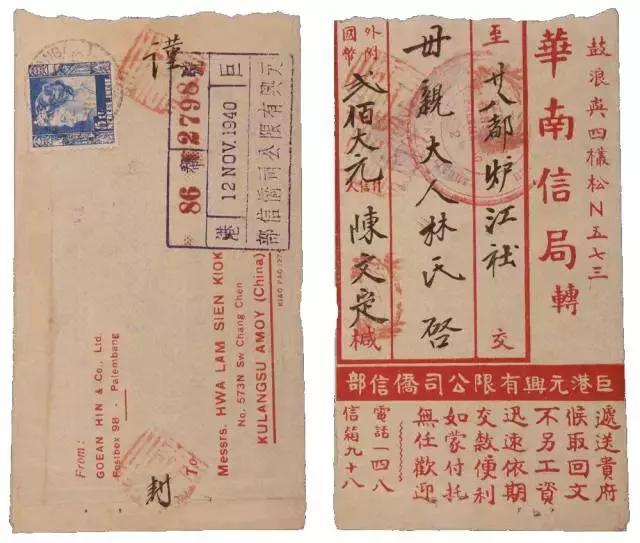 謹
86 幫 2798 號
巨港
12 NOV. 1940
元興有限公司僑信部
From:
GOEAN HIN & Co., Ltd.
Postbox 98 - Palembang
To:
Messrs. HWA LAM SIEN KIOK
No. 573N Sw Chang Chen
KULANGSU AMOY (China)
封
鼓浪與四樻松N五七三
華南信局轉
至廿八都炉江社交
毋親大人林氏啓
外附國幣貳佰大元陳文定緘
巨港元興有限公司僑信部
遞送貴府
候取回文
不另工資
迅速依期
交款便利
如蒙付托
無任歡迎
電話一四八
信箱九十八